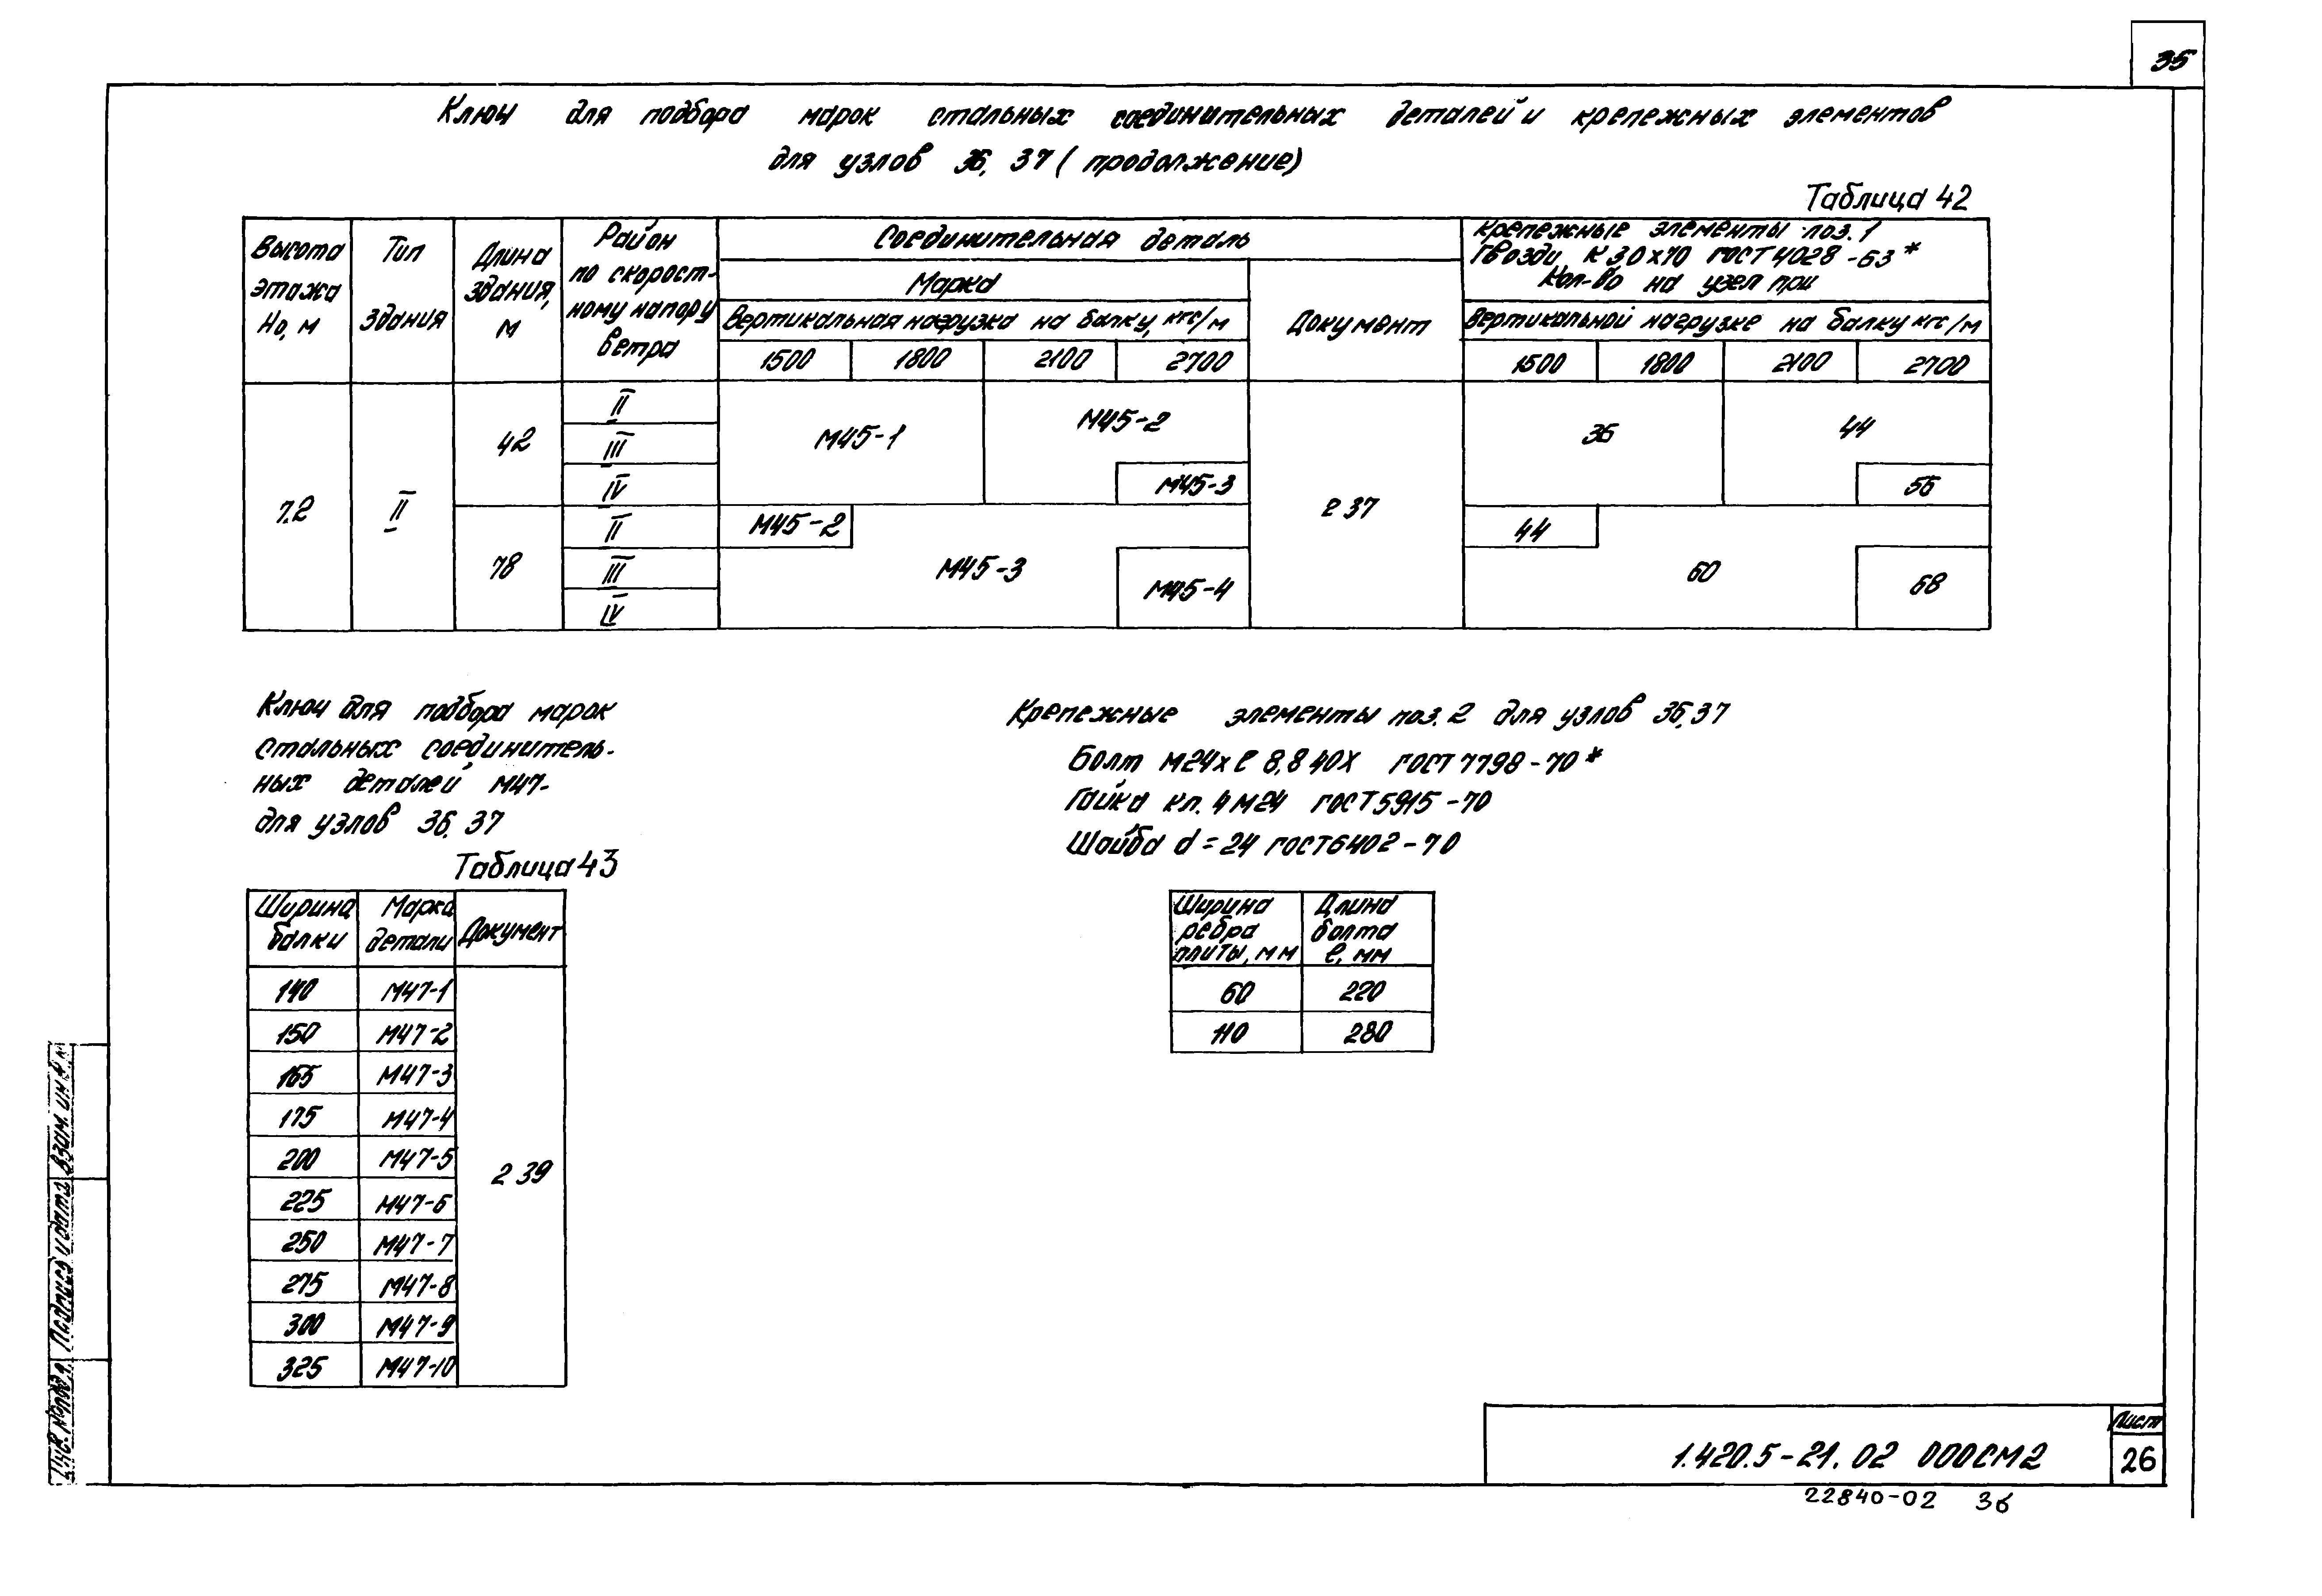 35
Ключ для подбора марок стальных соединительных деталей и крепежных элементов
для узлов 36, 37 (продолжение)
Таблица 42
Высота этажа Но, м
Тип здания
Длина здания, м
Район по скорост-ному напору ветра
Соединительная деталь
Марка
Вертикальная нагрузка на балку, кгс/м
1500 1800 2100 2700
Документ
Крепежные элементы поз. 1
Гвозди К 3.0х70 ГОСТ 4028-63*
Кол-во на узел при
вертикальной нагрузке на балку кгс/м
1500 1800 2100 2700
7.2 II 42 II М45-1 М45-2 2 37 36 44
III
IV М45-3 56
78 II М45-2 44
III М45-3 М45-4 60 68
IV
Ключ для подбора марок
стальных соединитель-
ных деталей М47-
для узлов 36, 37
Таблица 43
Ширина балки Марка детали Документ
140 М47-1
150 М47-2
165 М47-3
175 М47-4
200 М47-5
2 39
225 М47-6
250 М47-7
275 М47-8
300 М47-9
325 М47-10
Крепежные элементы поз. 2 для узлов 36, 37
Болт М24х ℓ 8.8 40Х ГОСТ 7798-70*
Гайка кл. 4 М24 ГОСТ 5915-70
Шайба d = 24 ГОСТ 6402-70
Ширина ребра плиты, мм
Длина болта ℓ, мм
60 220
110 280
Инв. № подл. Подпись и дата Взам. инв. №
1.420.5-21. 02 000СМ2
Лист
26
22840-02 36